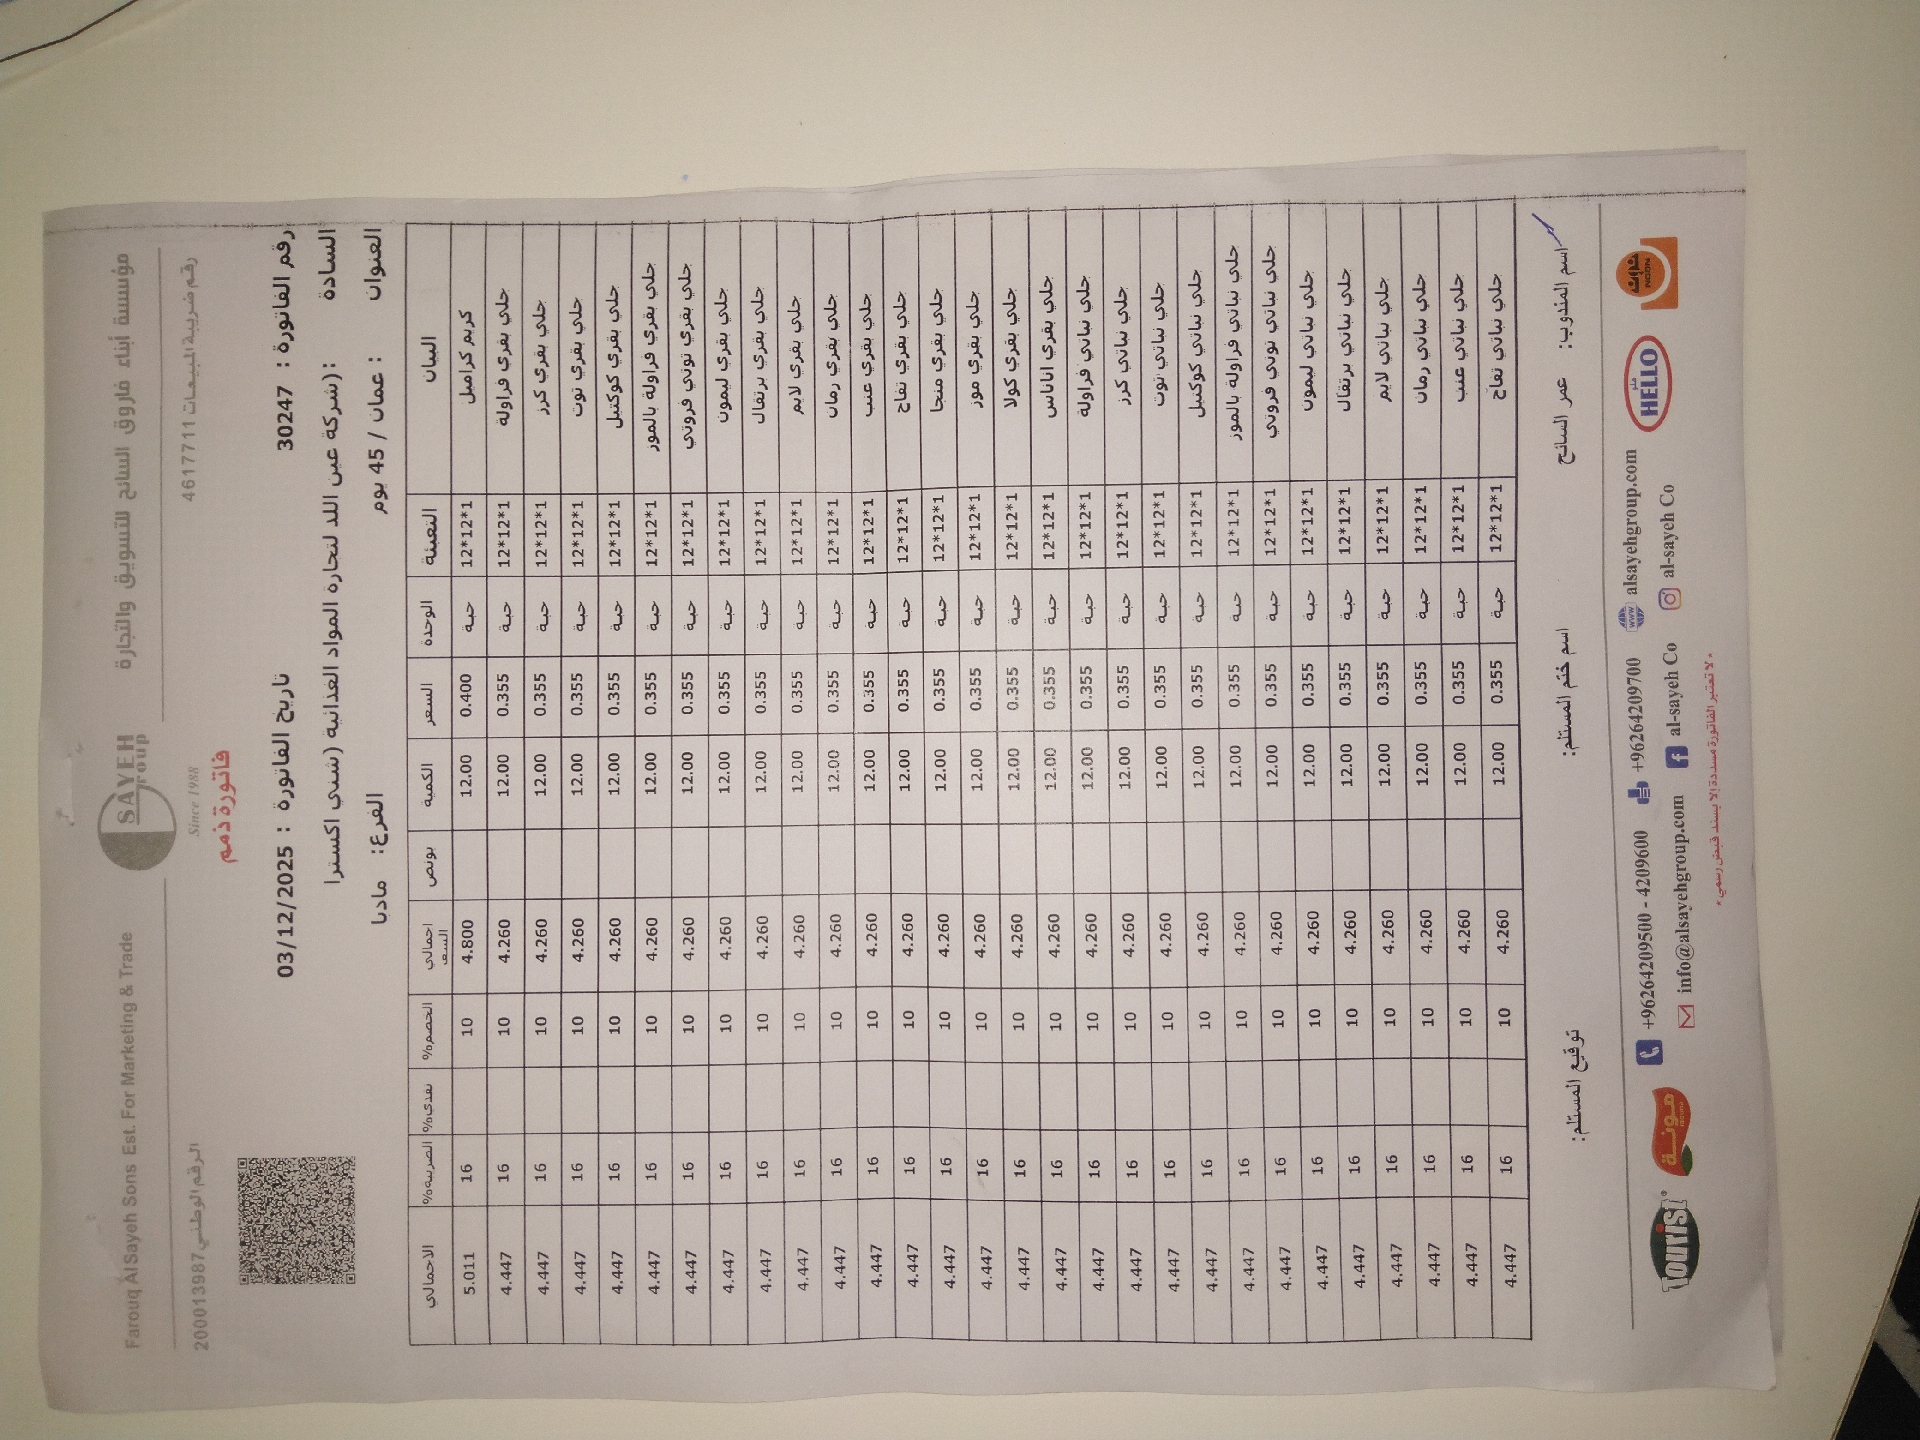 مؤسسة أبناء فاروق السائح للتسويق والتجارة
SAYEH
Group
Farouq AlSayeh Sons Est. For Marketing & Trade
رقم ضريبة المبيعات 4617711
Since 1988
الرقم الوطني 200013987
فاتورة ذمم
رقم الفاتورة : 30247 تاريخ الفاتورة : 03/12/2025
السادة : (شركة عين اللد لتجارة المواد الغذائية (شدي اكسترا
العنوان : عمان / 45 يوم الفرع: مادبا
البيان التعبئة الوحدة السعر الكمية بونص اجمالي السعر الخصم% نقدي% الضريبه% الاجمالي
كريم كراميل 12*12*1 حبة 0.400 12.00 4.800 10 16 5.011
جلي بقري فراولة 12*12*1 حبة 0.355 12.00 4.260 10 16 4.447
جلي بقري كرز 12*12*1 حبة 0.355 12.00 4.260 10 16 4.447
جلي بقري توت 12*12*1 حبة 0.355 12.00 4.260 10 16 4.447
جلي بقري كوكتيل 12*12*1 حبة 0.355 12.00 4.260 10 16 4.447
جلي بقري فراولة بالموز 12*12*1 حبة 0.355 12.00 4.260 10 16 4.447
جلي بقري توتي فروتي 12*12*1 حبة 0.355 12.00 4.260 10 16 4.447
جلي بقري ليمون 12*12*1 حبة 0.355 12.00 4.260 10 16 4.447
جلي بقري برتقال 12*12*1 حبة 0.355 12.00 4.260 10 16 4.447
جلي بقري لايم 12*12*1 حبة 0.355 12.00 4.260 10 16 4.447
جلي بقري رمان 12*12*1 حبة 0.355 12.00 4.260 10 16 4.447
جلي بقري عنب 12*12*1 حبة 0.355 12.00 4.260 10 16 4.447
جلي بقري تفاح 12*12*1 حبة 0.355 12.00 4.260 10 16 4.447
جلي بقري منجا 12*12*1 حبة 0.355 12.00 4.260 10 16 4.447
جلي بقري موز 12*12*1 حبة 0.355 12.00 4.260 10 16 4.447
جلي بقري كولا 12*12*1 حبة 0.355 12.00 4.260 10 16 4.447
جلي بقري اناناس 12*12*1 حبة 0.355 12.00 4.260 10 16 4.447
جلي نباتي فراولة 12*12*1 حبة 0.355 12.00 4.260 10 16 4.447
جلي نباتي كرز 12*12*1 حبة 0.355 12.00 4.260 10 16 4.447
جلي نباتي توت 12*12*1 حبة 0.355 12.00 4.260 10 16 4.447
جلي نباتي كوكتيل 12*12*1 حبة 0.355 12.00 4.260 10 16 4.447
جلي نباتي فراولة بالموز 12*12*1 حبة 0.355 12.00 4.260 10 16 4.447
جلي نباتي توتي فروتي 12*12*1 حبة 0.355 12.00 4.260 10 16 4.447
جلي نباتي ليمون 12*12*1 حبة 0.355 12.00 4.260 10 16 4.447
جلي نباتي برتقال 12*12*1 حبة 0.355 12.00 4.260 10 16 4.447
جلي نباتي لايم 12*12*1 حبة 0.355 12.00 4.260 10 16 4.447
جلي نباتي رمان 12*12*1 حبة 0.355 12.00 4.260 10 16 4.447
جلي نباتي عنب 12*12*1 حبة 0.355 12.00 4.260 10 16 4.447
جلي نباتي تفاح 12*12*1 حبة 0.355 12.00 4.260 10 16 4.447
اسم المندوب: عمر السائح اسم ختم المستلم: توقيع المستلم:
TOURIST مونة +96264209500 - 4209600 +96264209700 alsayehgroup.com هلو HELLO NOON
info@alsayehgroup.com al-sayeh Co al-sayeh Co
* لا تعتبر الفاتورة مسددة إلا بسند قبض رسمي *